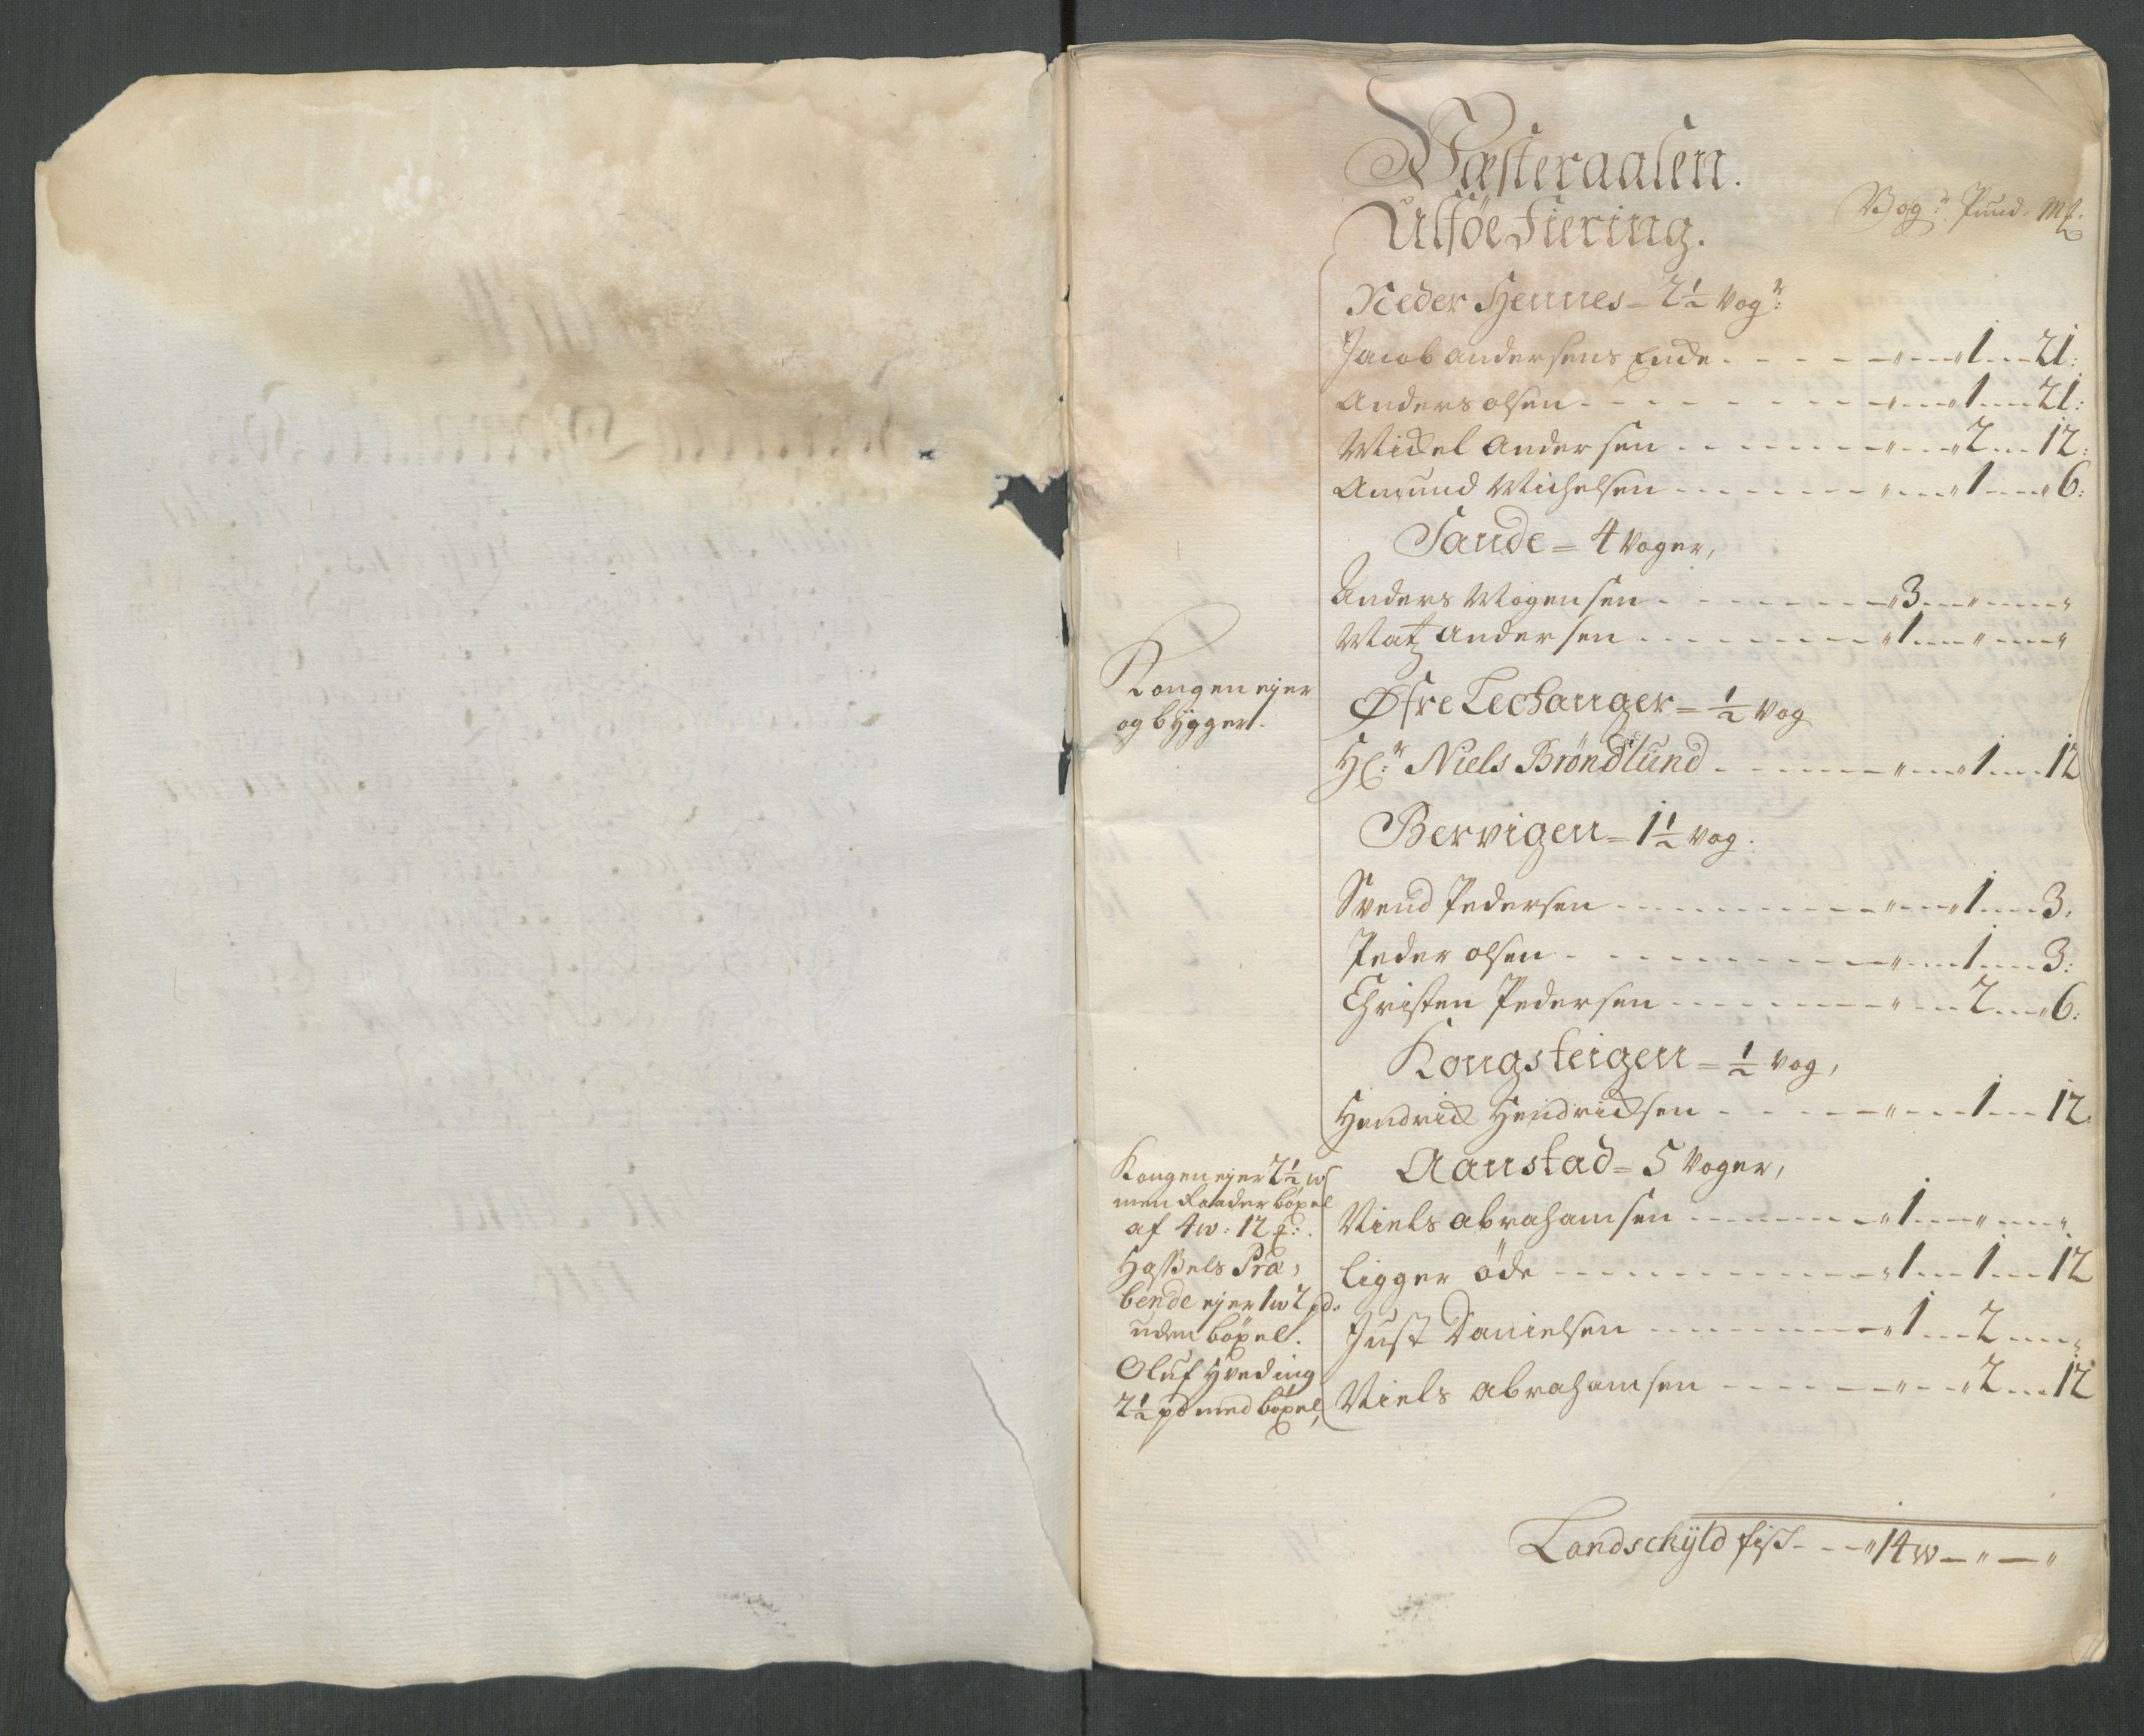 Væsteraalen.
Ulføe Fiering.
Vog:r Pund. Mk.
Neder Hennes - 2 1/2 Vog:r
Jacob Andersens Encke - - - " - - " 1 - - 21:
Anders Olsen - - - " - - " 1 - - 21:
Mickel Andersen - - - " - - " 2 - - 12:
Amund Michelsen - - - " - - " 1 - - " 6:
Sande = 4 Voger,
Anders Mogensen - - - " 3 - - " - - "
Matz Andersen - - - " 1 - - " - - "
Kongen ejer
og bygger.
Øfre Lechanger = 1/2 Vog
H:r Niels Bröndlund - - - " - - " 1 - - 12
Bervigen = 1 1/2 Vog.
Svend Pedersen - - - " - - " 1 - - 3:
Peder Olsen - - - " - - 1 - - 3:
Christen Pedersen - - - " - - 2 - - " 6:
Kongsteigen = 1/2 Vog,
Hendrick Hendricksen - - - " - - 1 - - 12
Kongen ejer 2 1/2 w
men Raader böxel
af 4 w: 12 :
Hassels Præ,
bende ejer 1 w 2 pd:
uden böxel.
Oluf Hveding
2 1/2 pd med böxel,
Aanstad = 5 Voger,
Niels Abrahamsen - - - " 1 - - " - - "
ligger öde - - - " 1 - - 1 - - 12
Just Danielsen - - - " 1 - - 2 - - "
Niels Abrahamsen - - - " - - " 2 - - 12
Landschÿld fisk - - " 14 w - " - "